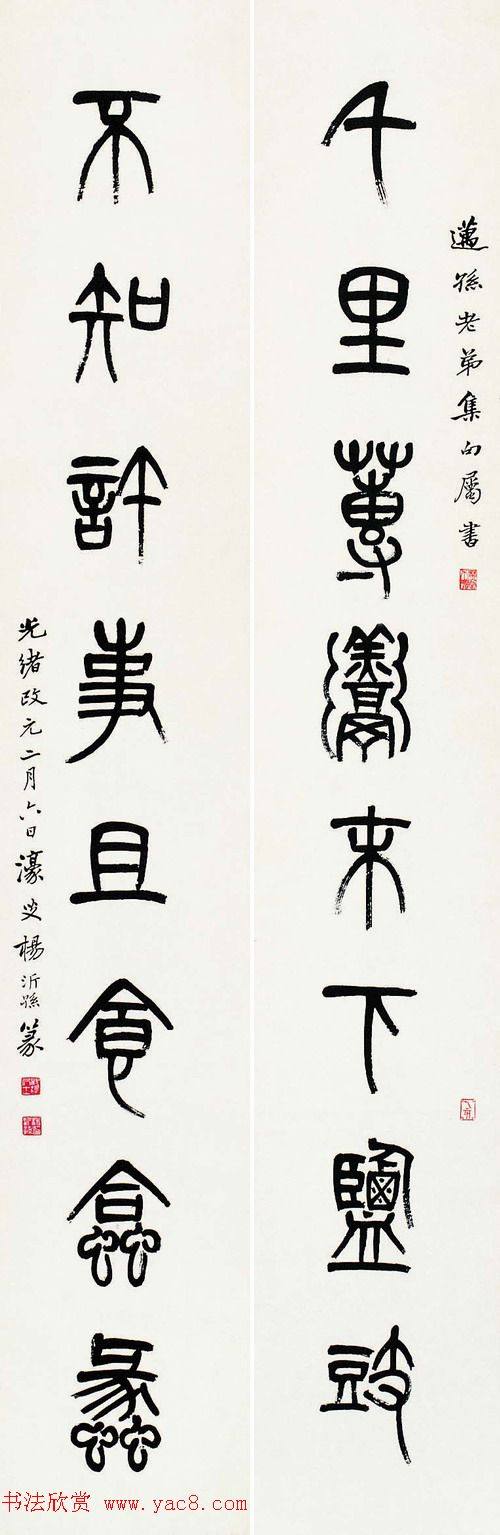 邁孫老弟集句屬書
千里蓴羹末下鹽豉
不知許事且食蛤蠡
光緒改元二月六日濠叟楊沂孫篆
书法欣赏 www.yac8.com